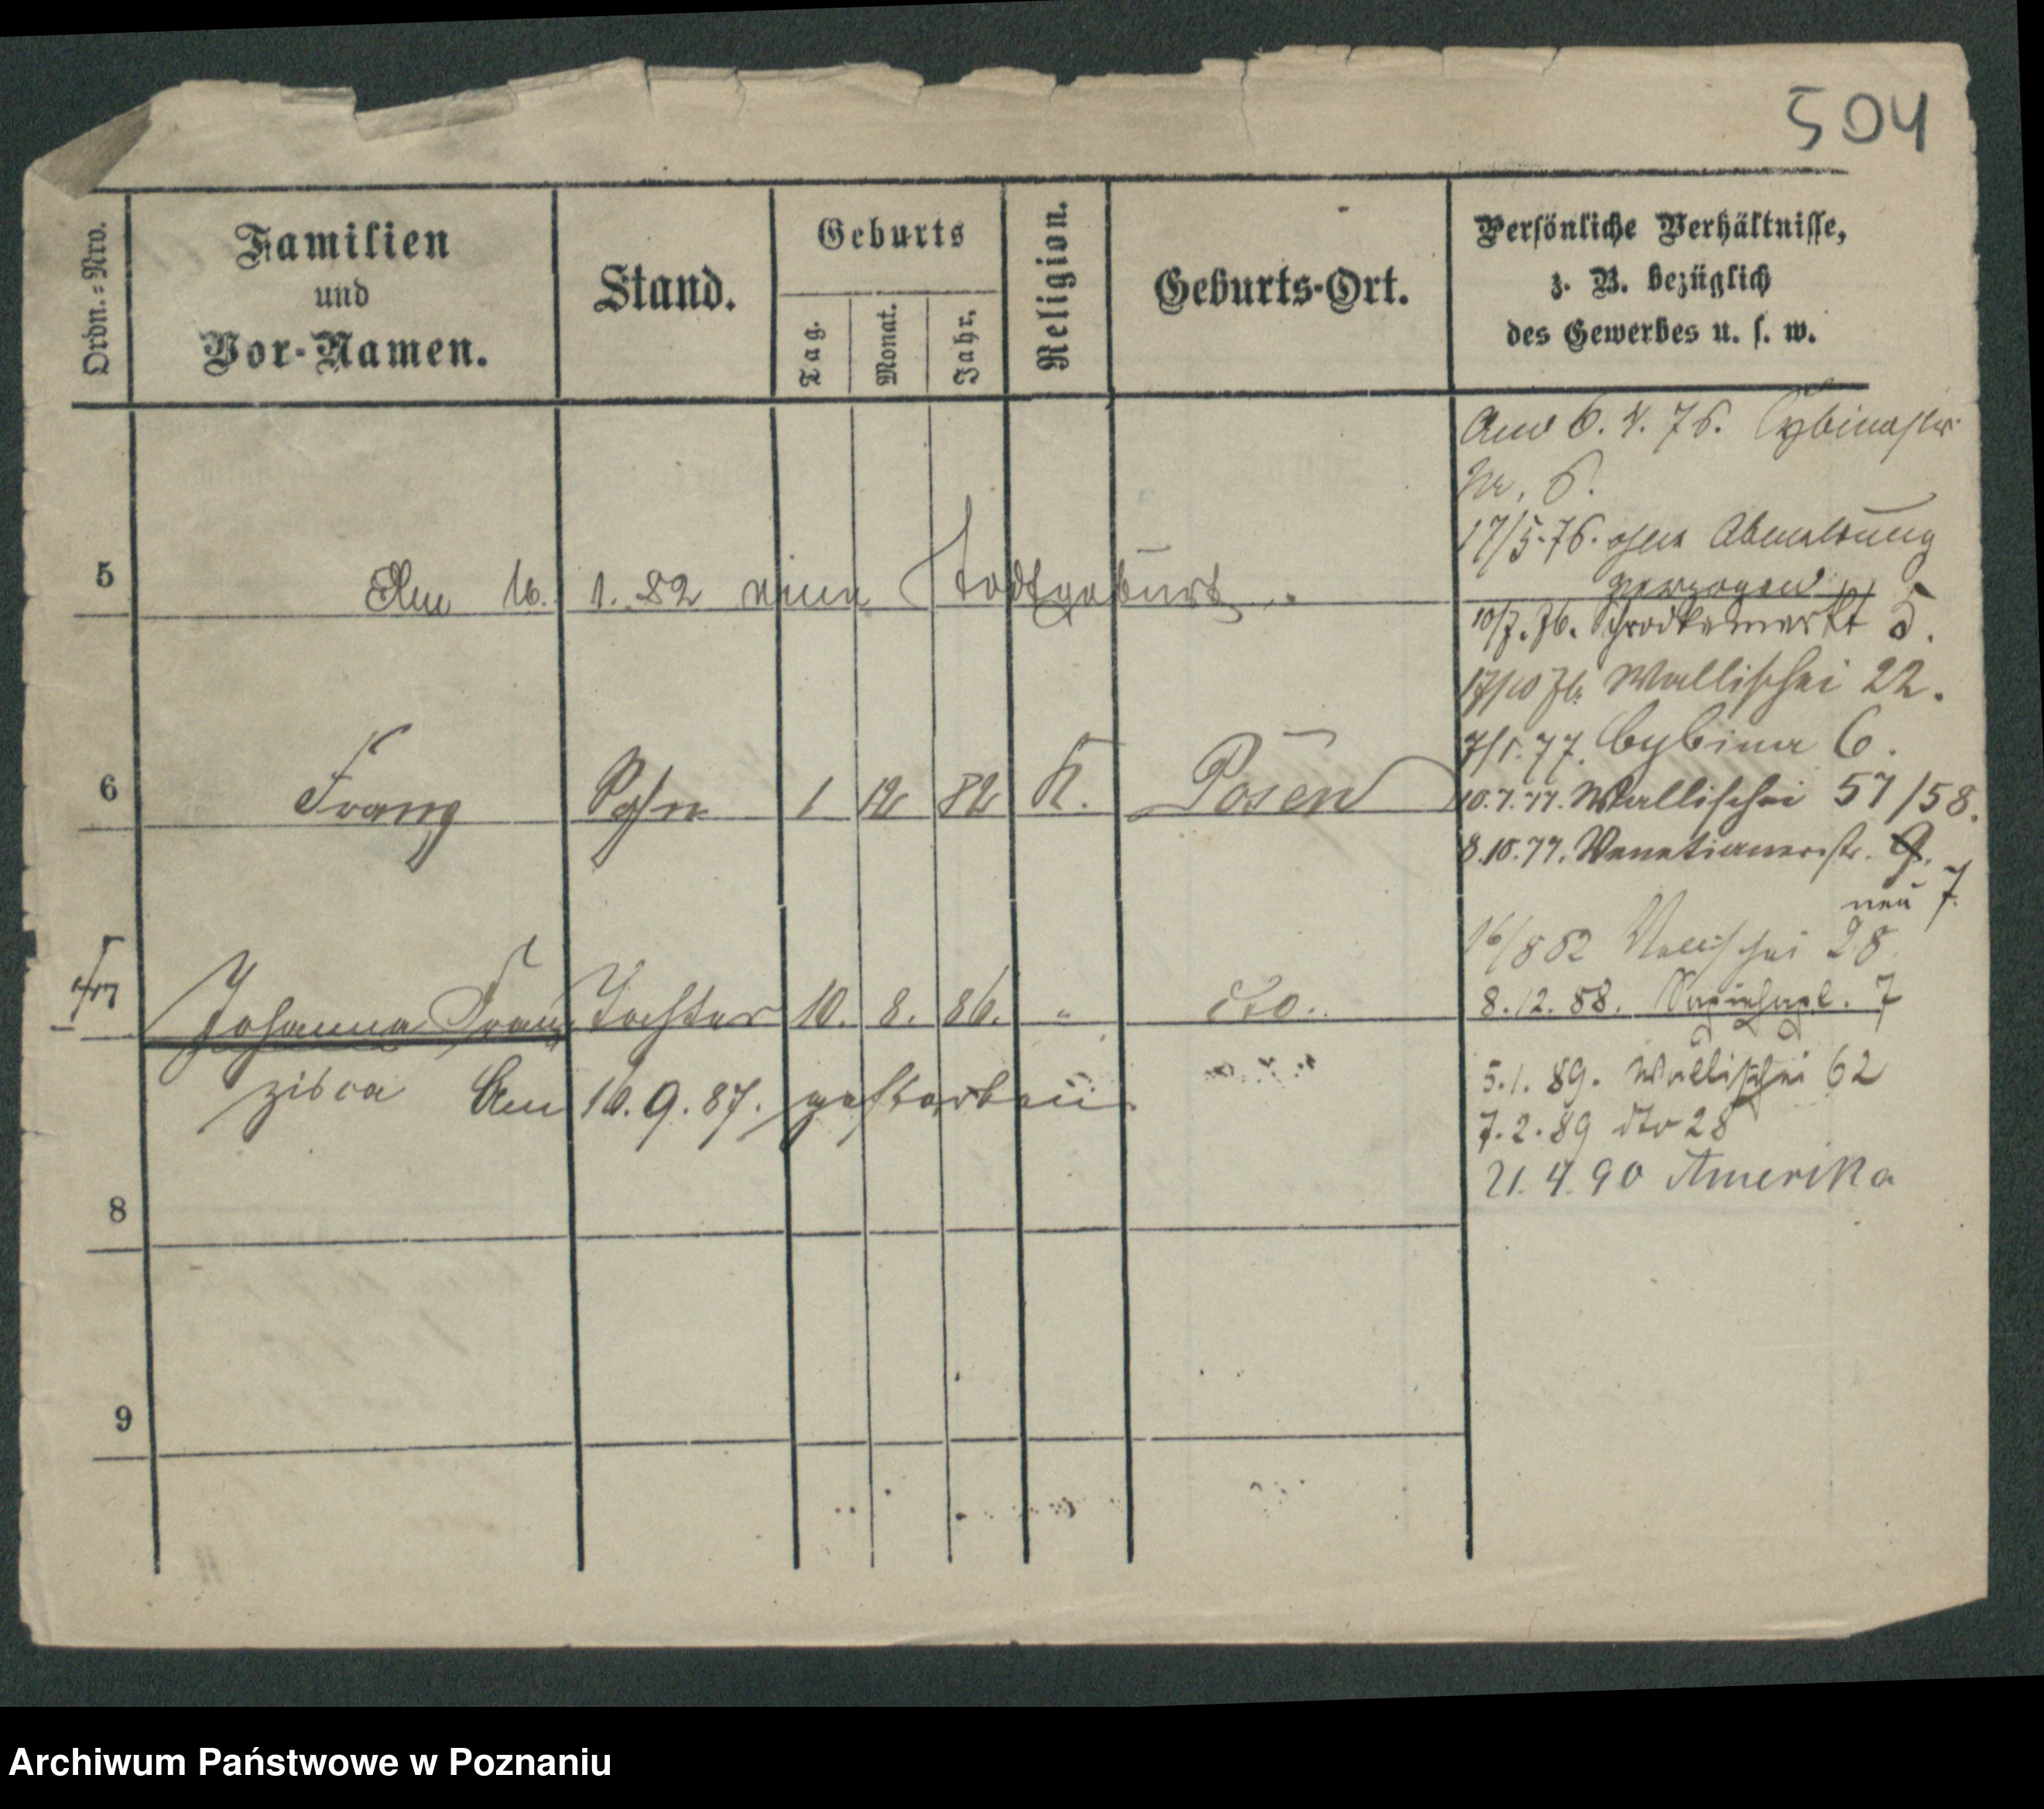 504
Ordn.=Nro.
Familien
und
Vor-Namen.
Stand.
Geburts
Tag.
Monat.
Jahr.
Religion.
Geburts-Ort.
Persönliche Verhältnisse,
z. B. bezüglich
des Gewerbes u. s. w.
5
Am 16. 1. 82 eine Todtgeburt.
6
Franz Sohn 1 12 82 K. Posen
7
Johanna Fran Tochter 10. 8. 86. " dto.
zisca Am 16. 9. 87. gestorben
8
9
Am 6. 4. 76. Cybinastr.
Nr. 6.
17/5. 76. ohne Abmeldung
verzogen
10/7. 76. Schrodkamarkt 5.
17/10 76. Wallischei 22.
7/1. 77. Cybina 6.
10. 7. 77. Wallischei 57/58.
8. 10. 77. Venetianerstr. 9.
neu 7.
16/8 82 Wallischei 28.
8. 12. 88. 7
5. 1. 89. Wallischei 62
7. 2. 89 dto 28
21. 4. 90 Amerika
Archiwum Państwowe w Poznaniu